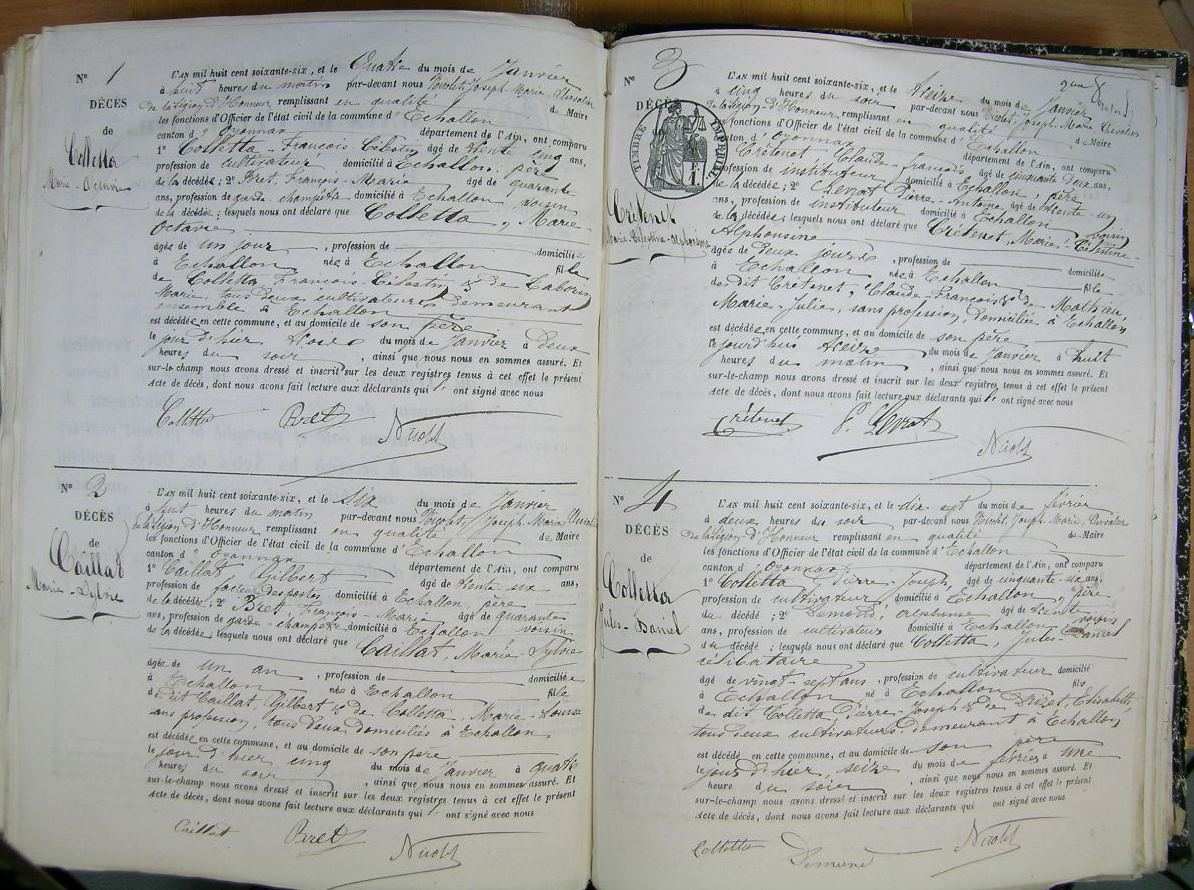 N° 1
DÉCÈS
de
Colletta
Marie-Octavie
L'AN mil huit cent soixante-six, et le Quatre du mois de Janvier
à huit heures du matin par-devant nous Nicolet, Joseph-Marie, Chevalier
de la légion d'Honneur, remplissant en qualité de Maire
les fonctions d'Officier de l'état civil de la commune d'Echallon
canton d'Oyonnax département de l'Ain, ont comparu
1° Colletta, François Célestin âgé de trente cinq ans,
profession de cultivateur domicilié à Echallon, père
de la décédée; 2° Bret, François-Marie âgé de quarante
ans, profession de garde champêtre domicilié à Echallon voisin
de la décédée; lesquels nous ont déclaré que Colletta, Marie
Octavie
âgée de un jour, profession de domiciliée
à Echallon née à Echallon fille
de Colletta François-Célestin & de
Marie, tous deux cultivateurs demeurant
ensemble à Echallon
est décédée en cette commune, et au domicile de son père
le jour d'hier trois du mois de Janvier à deux
heures du soir, ainsi que nous nous en sommes assuré. Et
sur-le-champ nous avons dressé et inscrit sur les deux registres tenus à cet effet le présent
Acte de décès, dont nous avons fait lecture aux déclarants qui ont signé avec nous
Colletta Bret Nicolet
N° 2
DÉCÈS
de
Caillat
Marie-Sylvie
L'AN mil huit cent soixante-six, et le six du mois de Janvier
à huit heures du matin par-devant nous Nicolet, Joseph Marie, Chevalier
de la légion d'Honneur remplissant en qualité de Maire
les fonctions d'Officier de l'état civil de la commune d'Echallon
canton d'Oyonnax département de l'Ain, ont comparu
1° Caillat Gilbert âgé de trente six ans,
profession de facteur des postes domicilié à Echallon père
de la décédée; 2° Bret, François-Marie âgé de quarante
ans, profession de garde-champêtre domicilié à Echallon voisin
de la décédée; lesquels nous ont déclaré que Caillat, Marie-Sylvie
âgée de un an, profession de domiciliée
à Echallon née à Echallon fille
de dit Caillat, Gilbert & de Colletta, Marie-Louise
sans profession, tous deux domiciliés à Echallon
est décédée en cette commune, et au domicile de son père
le jour d'hier cinq du mois de Janvier à quatre
heures du soir, ainsi que nous nous en sommes assuré. Et
sur-le-champ nous avons dressé et inscrit sur les deux registres tenus à cet effet le présent
Acte de décès, dont nous avons fait lecture aux déclarants qui ont signé avec nous
Caillat Bret Nicolet
N° 3
DÉCÈS
TIMBRE IMPERIAL
Crétenet
Marie-Célestine-Alphonsine
L'AN mil huit cent soixante-six, et le treize du mois de Janvier
à cinq heures du soir par-devant nous Nicolet, Joseph-Marie Chevalier
de la légion d'Honneur, remplissant en qualité de Maire
les fonctions d'Officier de l'état civil de la commune d'Echallon
canton d'Oyonnax département de l'Ain, ont comparu
Crétenet, Claude-François âgé de cinquante deux ans,
profession de instituteur domicilié à Echallon, père
de la décédée; 2° Levrat Pierre-Antoine, âgé de trente un
ans, profession de instituteur domicilié à Echallon voisin
de la décédée; lesquels nous ont déclaré que Crétenet, Marie-Célestine-
Alphonsine
âgée de deux jours, profession de domiciliée
à Echallon née à Echallon fille
de dit Crétenet, Claude-François & de Mathieu,
Marie-Julie, sans profession, domiciliée à Echallon
est décédée en cette commune, et au domicile de son père
le jourd'hui treize du mois de Janvier à huit
heures du matin, ainsi que nous nous en sommes assuré. Et
sur-le-champ nous avons dressé et inscrit sur les deux registres tenus à cet effet le présent
Acte de décès, dont nous avons fait lecture aux déclarants qui ont signé avec nous
Crétenet P. Levrat
Nicolet
N° 4
DÉCÈS
de
Colletta
Jules-Daniel
L'AN mil huit cent soixante-six, et le dix sept du mois de février
à deux heures du soir par-devant nous Nicolet, Joseph Marie, Chevalier
de la légion d'Honneur remplissant en qualité de Maire
les fonctions d'Officier de l'état civil de la commune d'Echallon
canton d'Oyonnax département de l'Ain, ont comparu
1° Colletta, Pierre-Joseph âgé de cinquante-six ans,
profession de cultivateur, domicilié à Echallon, père
du décédé; 2° âgé de trente
ans, profession de cultivateur domicilié à Echallon voisin
du décédé; lesquels nous ont déclaré que Colletta, Jules-Daniel
célibataire
âgé de vingt-sept ans, profession de cultivateur domicilié
à Echallon né à Echallon fils
de dit Colletta, Pierre-Joseph & de Elisabeth,
tous deux cultivateurs demeurant à Echallon
est décédé en cette commune, et au domicile de son père
le jour d'hier, seize du mois de février à une
heure du soir, ainsi que nous nous en sommes assuré. Et
sur-le-champ nous avons dressé et inscrit sur les deux registres tenus à cet effet le présent
Acte de décès, dont nous avons fait lecture aux déclarants qui ont signé avec nous
Colletta Nicolet